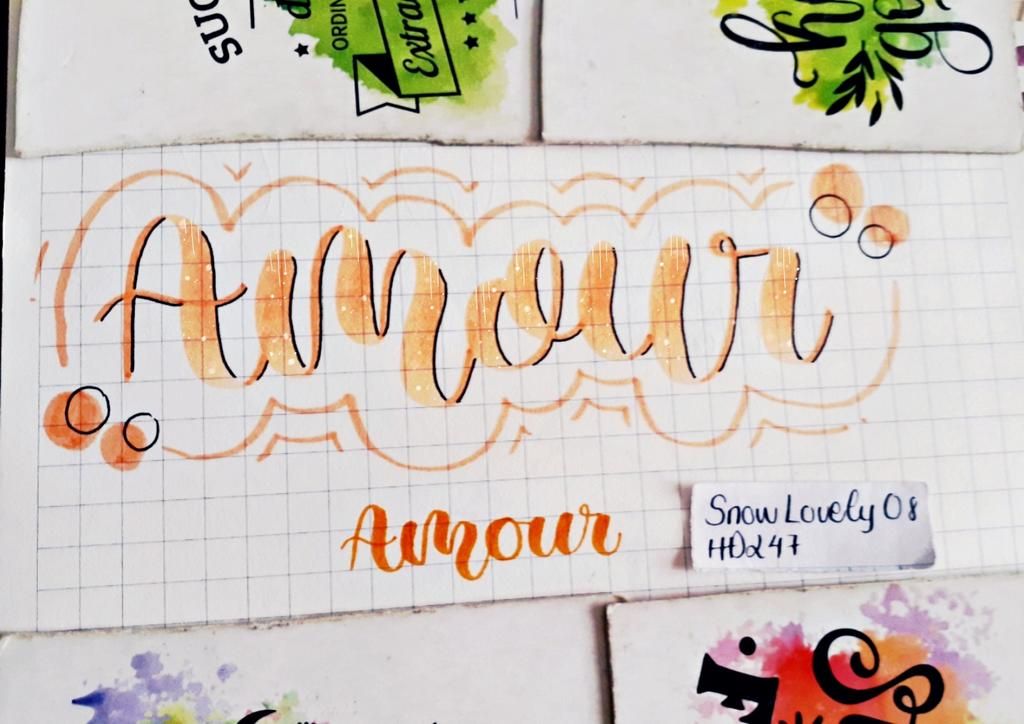 SUC
ORDIN
Extra
Amour
Amour
SnowLovely 08
HD247
F.
S